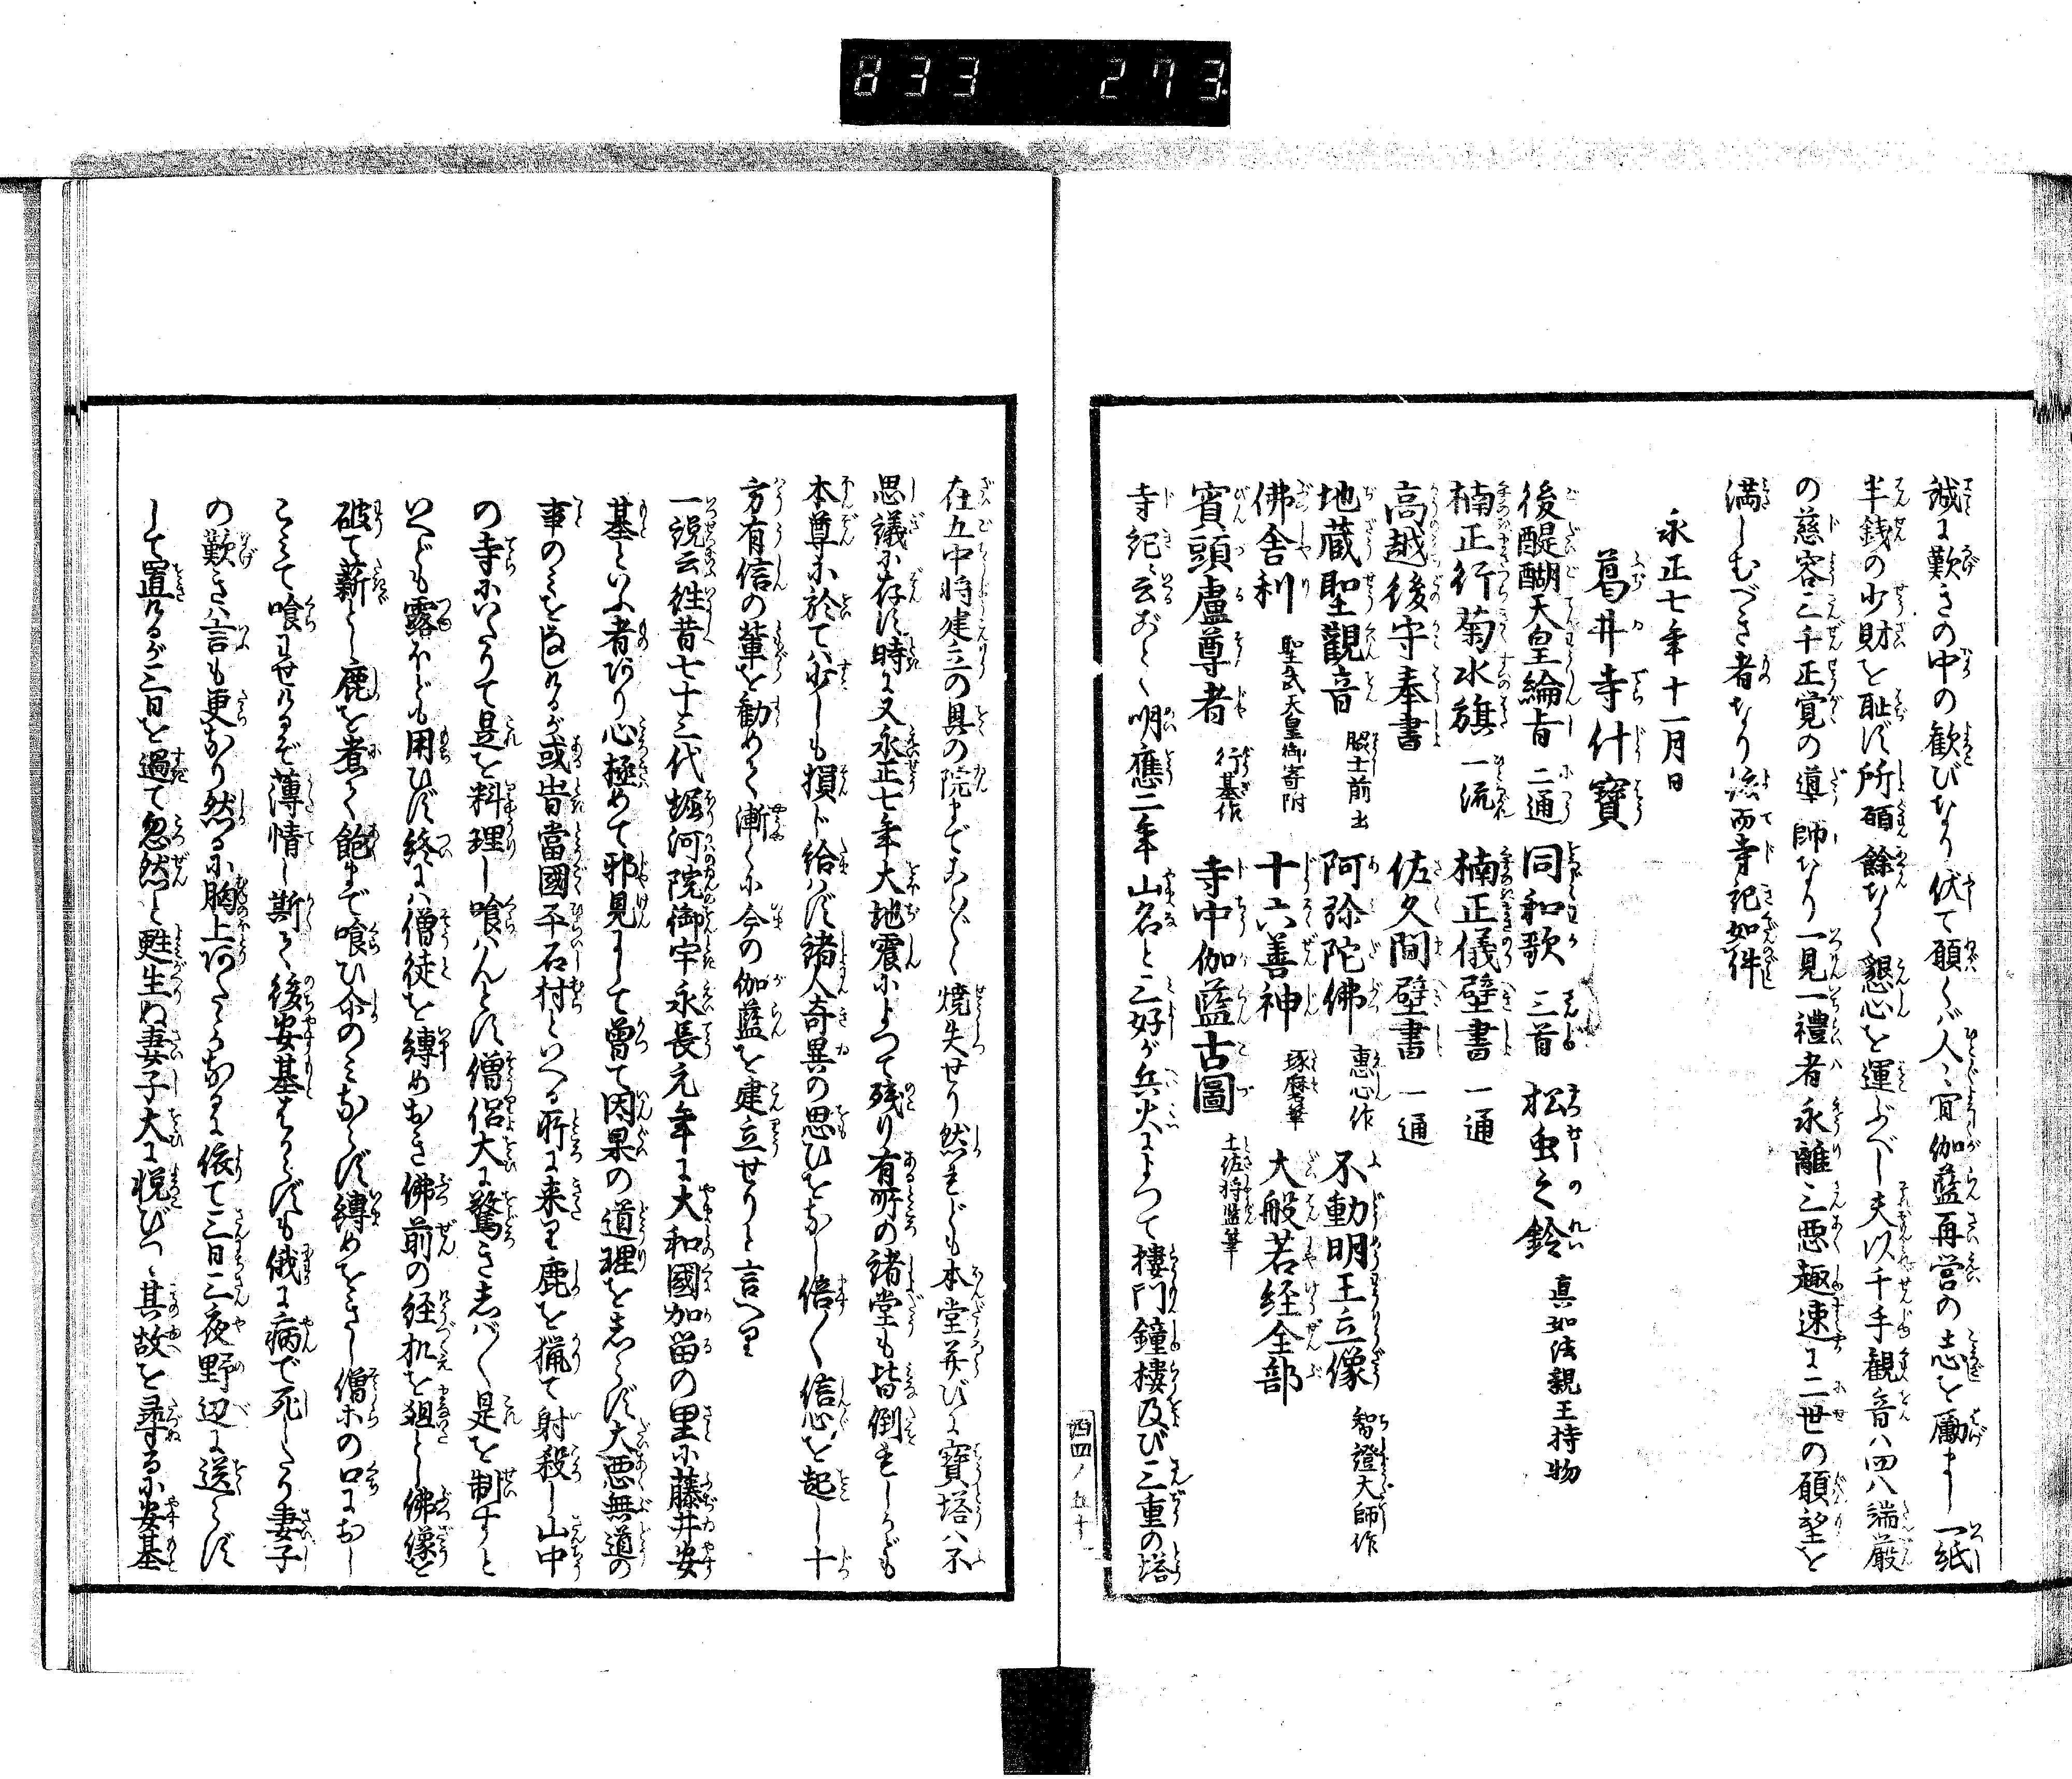 833 273
誠に歎きの中の歓びなり伏て願くバ人々宜伽藍再営の志を勵まし一紙
半銭の少財を耻ず所願餘なく懇心を運ぶべし夫以千手観音ハ四八端厳
の慈容三千正覚の導師なり一見一禮者永離三悪趣速に二世の願望を
満しむべき者なり依而寺記如件
永正七年十一月日
葛井寺什寳
後醍醐天皇綸旨 二通 同和歌 三首 松虫之鈴 真如法親王持物
楠正行菊水旗 一流 楠正儀壁書 一通
高越後守奉書 佐久間壁書 一通
地蔵聖觀音 脇士前出 阿弥陀佛 惠心作 不動明王立像 智證大師作
佛舎利 聖武天皇御寄附 十六善神 琢磨筆 大般若経全部
賓頭盧尊者 行基作 寺中伽藍古圖 土佐将監筆
寺紀ニ云おなじく明應二年山名と三好が兵火によつて樓門鐘樓及び三重の塔
四四ノ五十
在五中将建立の奥の院までことごとく焼失せり然れども本堂并びに寳塔ハ不
思議に存ず時に又永正七年大地震によつて残り有所の諸堂も皆倒れしかども
本尊に於てハ少しも損じ給はず諸人奇異の思ひをなし倍く信心を起し十
方有信の輩を勧めて漸くに今の伽藍を建立せりと言へり
一説云徃昔七十三代堀河院御宇永長元年に大和國加留の里に藤井安
基といふ者あり心極めて邪見にして曽て因果の道理をしらず大悪無道の
事のミをなしけるが或旹當國平石村といへる所に来り鹿を猟て射殺し山中
の寺にいたりて是を料理し喰ハんとす僧侶大に驚き志バく是を制すと
いへども露ほども用ひず終にハ僧徒を縛めおき佛前の経机を俎とし佛像を
破て薪とし鹿を煮て飽まで喰ひ余のミならず縛めをきし僧等の口におし
こミて喰ませけるぞ薄情し斯て後安基はからずも俄に病で死したり妻子
の歎きハ言も更なり然るに胸上あたゝかなるに依て三日三夜野辺に送らず
して置けるが三日を過て忽然と甦生ぬ妻子大に悦びつゝ其故を尋るに安基